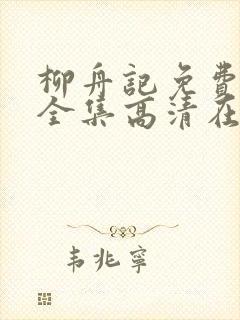 柳舟記免費
全集高清在
韦兆寧